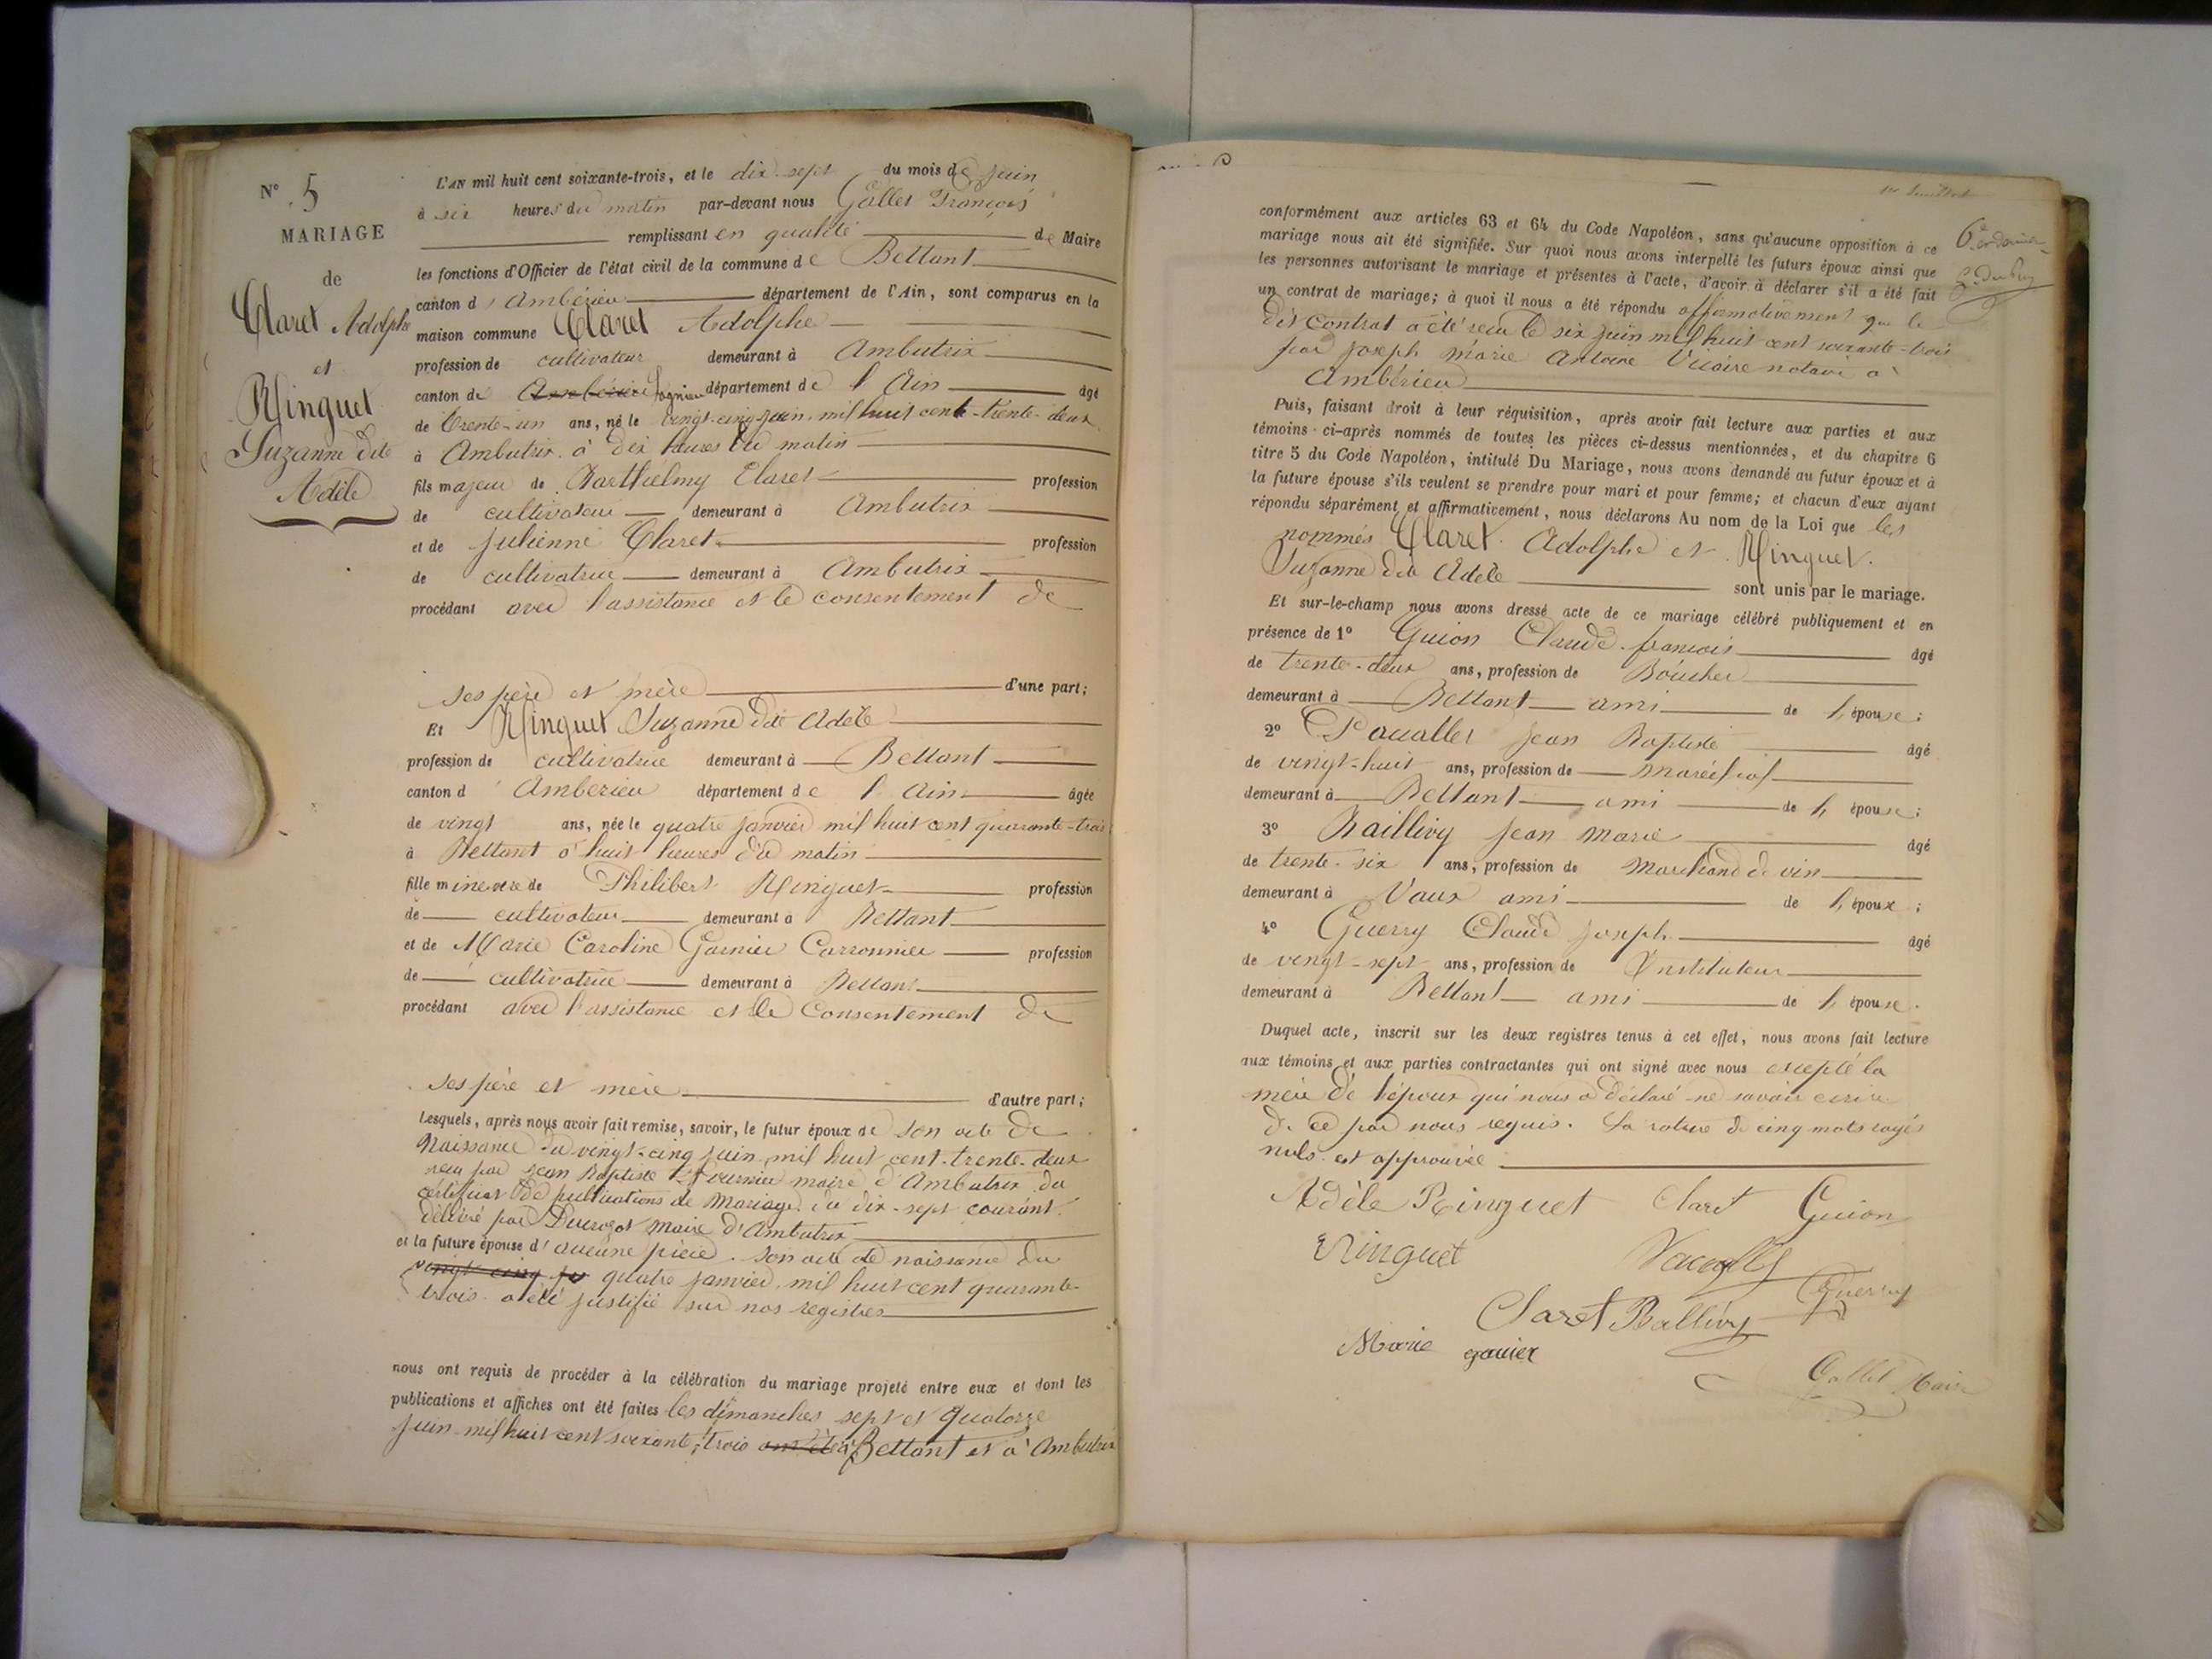 N° 5
MARIAGE
de
Claret Adolphe
et
Ringuet
Suzanne dite
Adèle
L'AN mil huit cent soixante-trois, et le dix-sept du mois de juin
à six heures du matin par-devant nous Gallet François
remplissant en qualité de Maire
les fonctions d'Officier de l'état civil de la commune de Bettant
canton d'Ambérieu département de l'Ain, sont comparus en la
maison commune Claret Adolphe
profession de cultivateur demeurant à Ambutrix
canton de Ambérieu Lagnieu département de l'Ain âgé
de trente-un ans, né le vingt-cinq juin mil huit cent-trente-deux
à Ambutrix à dix heures du matin
fils majeur de Barthelmy Claret profession
de cultivateur demeurant à Ambutrix
et de Julienne Claret profession
de cultivatrice demeurant à Ambutrix
procédant avec l'assistance et le consentement de
ses père et mère d'une part;
Et Ringuet Suzanne dite Adèle
profession de cultivatrice demeurant à Bettant
canton d'Ambérieu département de l'Ain âgée
de vingt ans, née le quatre janvier mil huit cent quarante-trois
à Bettant à huit heures du matin
fille mineure de Philibert Ringuet profession
de cultivateur demeurant à Bettant
et de Marie Caroline Garnier Carronnier profession
de cultivatrice demeurant à Bettant
procédant avec l'assistance et le consentement de
ses père et mère d'autre part;
Lesquels, après nous avoir fait remise, savoir, le futur époux de son acte de
naissance du vingt-cinq juin mil huit cent-trente-deux
reçu par Jean Baptiste Fournier maire d'Ambutrix du
certificat de publications de mariage du dix-sept courant
délivré par Ducrozot maire d'Ambutrix
et la future épouse d'aucune pièce. Son acte de naissance du
vingt-cinq quatre janvier mil huit cent quarante-
trois a été justifié sur nos registres
nous ont requis de procéder à la célébration du mariage projeté entre eux et dont les
publications et affiches ont été faites les dimanches sept et quatorze
juin mil huit cent soixante-trois à Bettant et à Ambutrix
conformément aux articles 63 et 64 du Code Napoléon, sans qu'aucune opposition à ce
mariage nous ait été signifiée. Sur quoi nous avons interpellé les futurs époux ainsi que
les personnes autorisant le mariage et présentes à l'acte, d'avoir à déclarer s'il a été fait
un contrat de mariage; à quoi il nous a été répondu affirmativement que le
dit contrat a été reçu le six juin mil huit cent soixante-trois
par Joseph Marie Antoine Vicaire notaire à
Ambérieu
Puis, faisant droit à leur réquisition, après avoir fait lecture aux parties et aux
témoins ci-après nommés de toutes les pièces ci-dessus mentionnées, et du chapitre 6
titre 5 du Code Napoléon, intitulé Du Mariage, nous avons demandé au futur époux et à
la future épouse s'ils veulent se prendre pour mari et pour femme; et chacun d'eux ayant
répondu séparément et affirmativement, nous déclarons Au nom de la Loi que les
nommés Claret Adolphe et Ringuet
Suzanne dite Adèle sont unis par le mariage.
Et sur-le-champ nous avons dressé acte de ce mariage célébré publiquement et en
présence de 1° Guion Claude françois âgé
de trente-deux ans, profession de Boucher
demeurant à Bettant ami de l'épouse;
2° Jean Baptiste âgé
de vingt-huit ans, profession de maréchal
demeurant à Bettant ami de l'épouse;
3° Baillivy Jean Marie âgé
de trente-six ans, profession de Marchand de vin
demeurant à Vaux ami de l'époux;
4° Guerry Claude Joseph âgé
de vingt-sept ans, profession de Instituteur
demeurant à Bettant ami de l'épouse.
Duquel acte, inscrit sur les deux registres tenus à cet effet, nous avons fait lecture
aux témoins et aux parties contractantes qui ont signé avec nous excepté la
mère de l'époux qui nous a déclaré ne savoir écrire
de ce par nous requis. La rature de cinq mots rayés
nuls est approuvée
Adèle Ringuet Claret Guion
Ringuet
Guerry
Claret Ballivy
Marie garnier
Gallet Maire